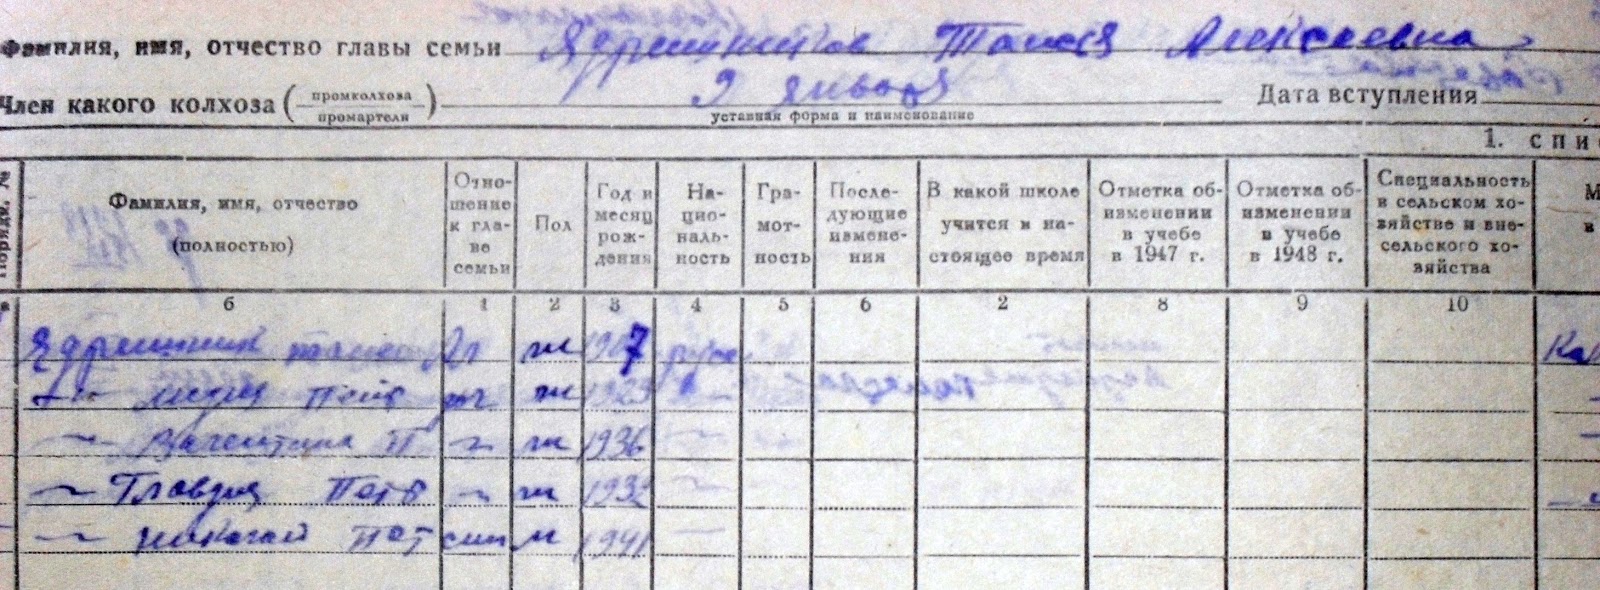 Фамилия, имя, отчество главы семьи Ядрышников Таисия Алексеевна
Член какого колхоза (промколхоза промартели) 9 января Дата вступления
уставная форма и наименование
1. СПИ
Порядк. № Фамилия, имя, отчество (полностью) Отно-шение к гла-ве семьи Пол Год и месяц рож-дения На-цио-наль-ность Гра-мот-ность После-дующие измене-ния В какой школе учится в на-стоящее время Отметка об изменении в учебе в 1947 г. Отметка об изменении в учебе в 1948 г. Специальность в сельском хо-зяйстве и вне-сельского хо-зяйства М в
б 1 2 3 4 5 6 2 8 9 10
Ядрышник Таисия Ал ж 1907 русс Кол
-"- Лидия Петр ж 1923 -"-
-"- Валентина П -"- ж 1936 -"-
-"- Клавдия Петр -"- ж 1932 -"-
-"- Николай Пет сын м 1941 -"-